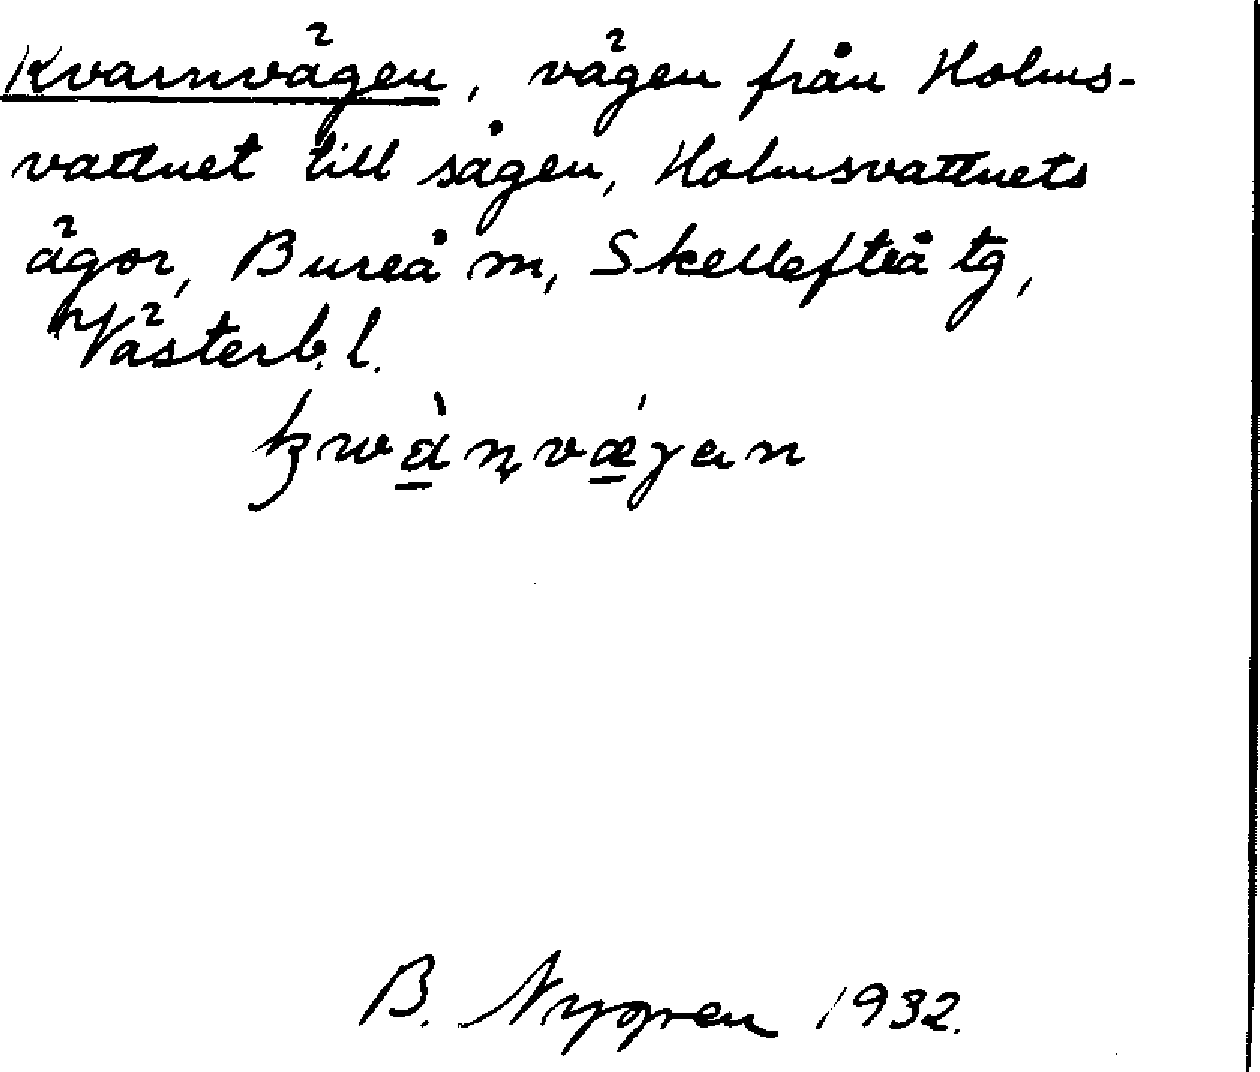 Kvarnvägen, vägen från Holms-
vattnet till sågen, Holmsvattnets
ägor, Bureå m, Skellefteå tg,
Västerb. l.
B. Nygren 1932.